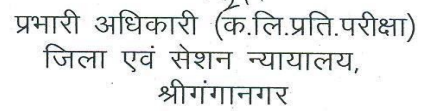 प्रभारी अधिकारी (क.लि.प्रति.परीक्षा)
जिला एवं सेशन न्यायालय,
श्रीगंगानगर